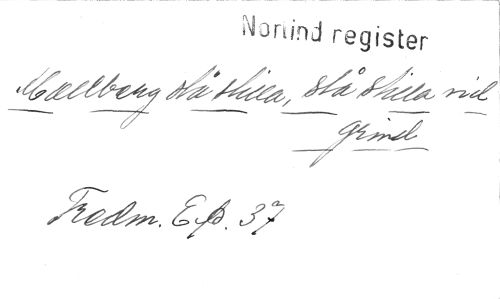 Norlind register
Mollberg stå stilla, stå stilla vid
grind
Fredm. Ep. 37